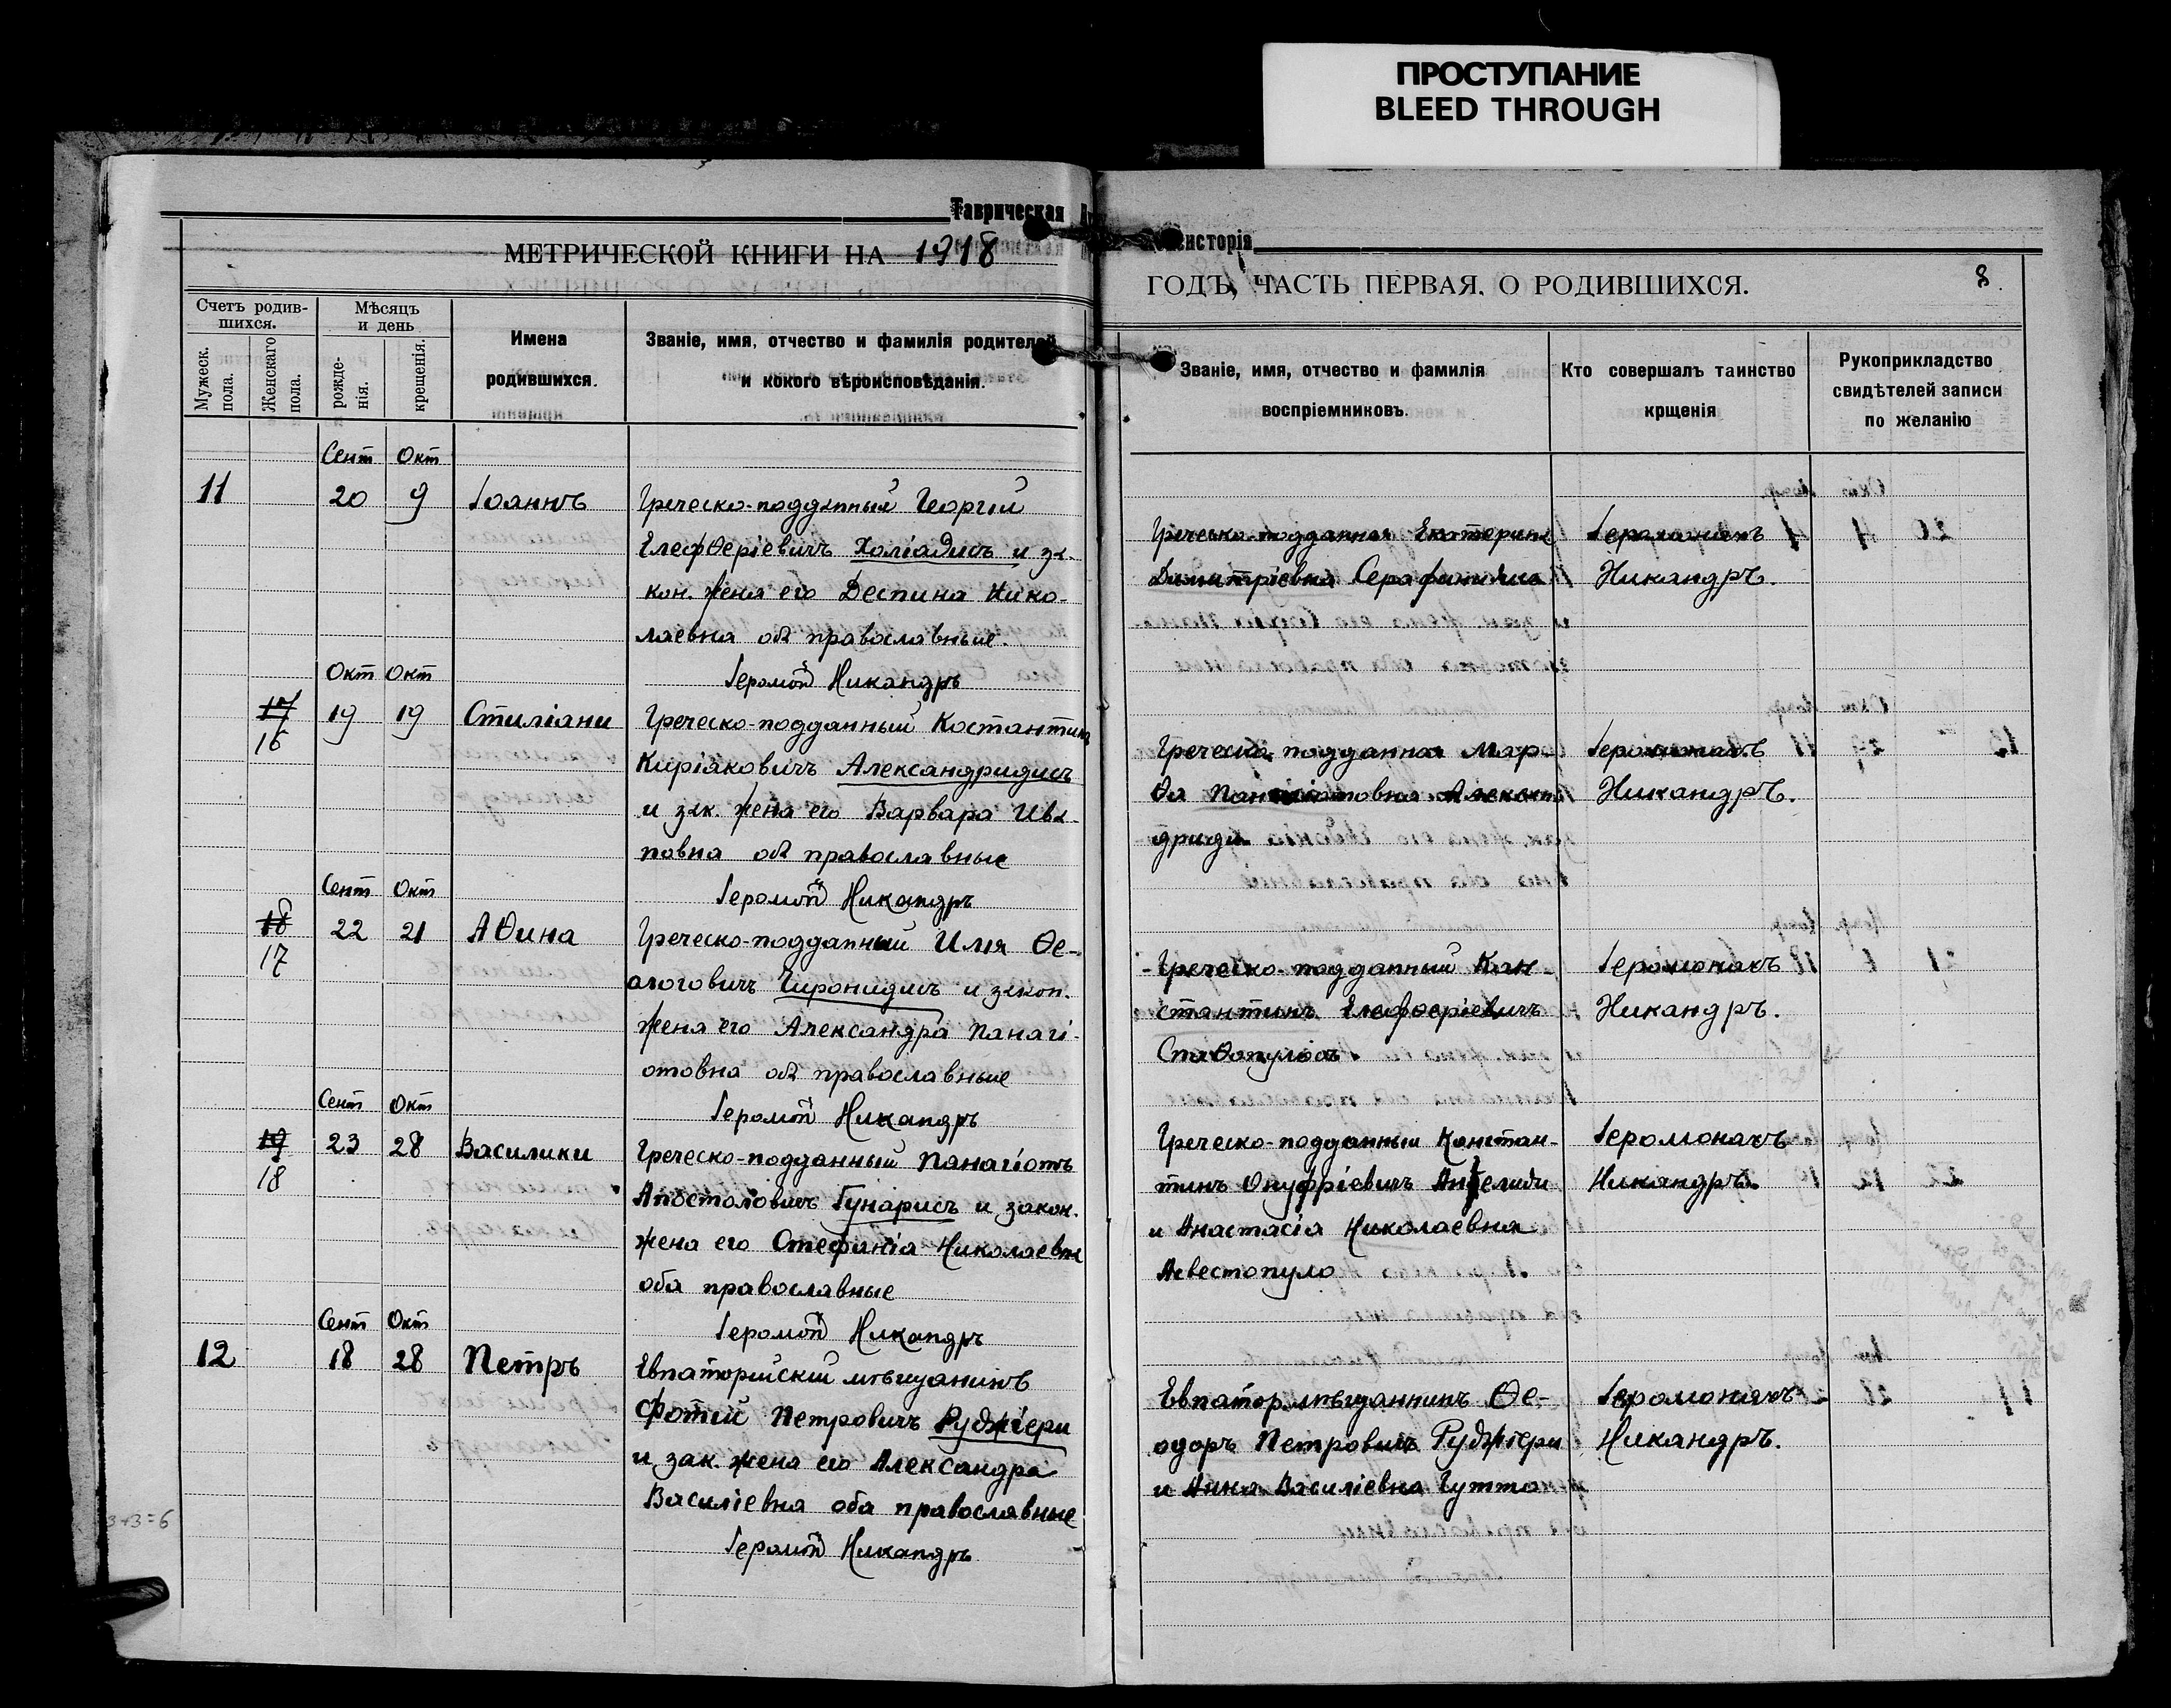 ПРОСТУПАНИЕ
BLEED THROUGH
Таврическая
МЕТРИЧЕСКОЙ КНИГИ НА 1918
Счетъ родив-
шихся.
Мужеск.
пола.
Женскаго
пола.
Мѣсяцъ
и день
рожде-
нія.
крещенія.
Имена
родившихся.
Званіе, имя, отчество и фамилія родителей
и кокого вѣроисповѣданія.
Сент Окт
11 20 9 Іоаннъ Греческо-подданный Георгій
Елефѳеріевичъ Холіадисъ и за-
кон. жена его Деспина Нико-
лаевна оба православные.
Іеромон Никандръ
Окт Окт
17 19 19 Стиліани Греческо-подданный Костантинъ
16
Киріяковичъ Александридисъ
и зак. жена его Варвара Ива-
новна оба православные
Іеромон Никандръ
Сент Окт
18 22 21 Аѳина Греческо-подданный Илія Ѳе-
17
ологовичъ Чиронидисъ и закон.
жена его Александра Панагі-
отовна оба православные
Іеромон Никандръ
Сент Окт
19 23 28 Василики Греческо-подданный Панагіотъ
18
Апостоловичъ Гунарисъ и закон.
жена его Стефанія Николаевна
оба православные
Іеромон Никандръ
Сент Окт
12 18 28 Петръ Евпаторійскій мѣщанинъ
Фотій Петровичъ Руджіери
и зак. жена его Александра
Василіевна оба православные
Іеромон Никандръ
3+3=6
исторія
ГОДЪ, ЧАСТЬ ПЕРВАЯ, О РОДИВШИХСЯ.
8
Званіе, имя, отчество и фамилія
воспріемниковъ.
Кто совершалъ таинство
крщенія
Рукоприкладство
свидѣтелей записи
по желанію
Греческо-подданная Екатерина Іеромонахъ
Димитріевна Никандръ.
Греческо-подданная Мар- Іеромонахъ
ѳа Панагіотовна Алексан- Никандръ.
дриди
Греческо-подданный Кон- Іеромонахъ
стантинъ Елефѳеріевичъ Никандръ.
Стаѳопулосъ.
Греческо-подданный Констан- Іеромонахъ
тинъ Онуфріевичъ Ангелиди Никандръ.
и Анастасія Николаевна
Асвестопуло
Евпатор. мѣщанинъ Ѳе- Іеромонахъ
одоръ Петровичъ Руджіери Никандръ.
и Анна Василіевна Гутта